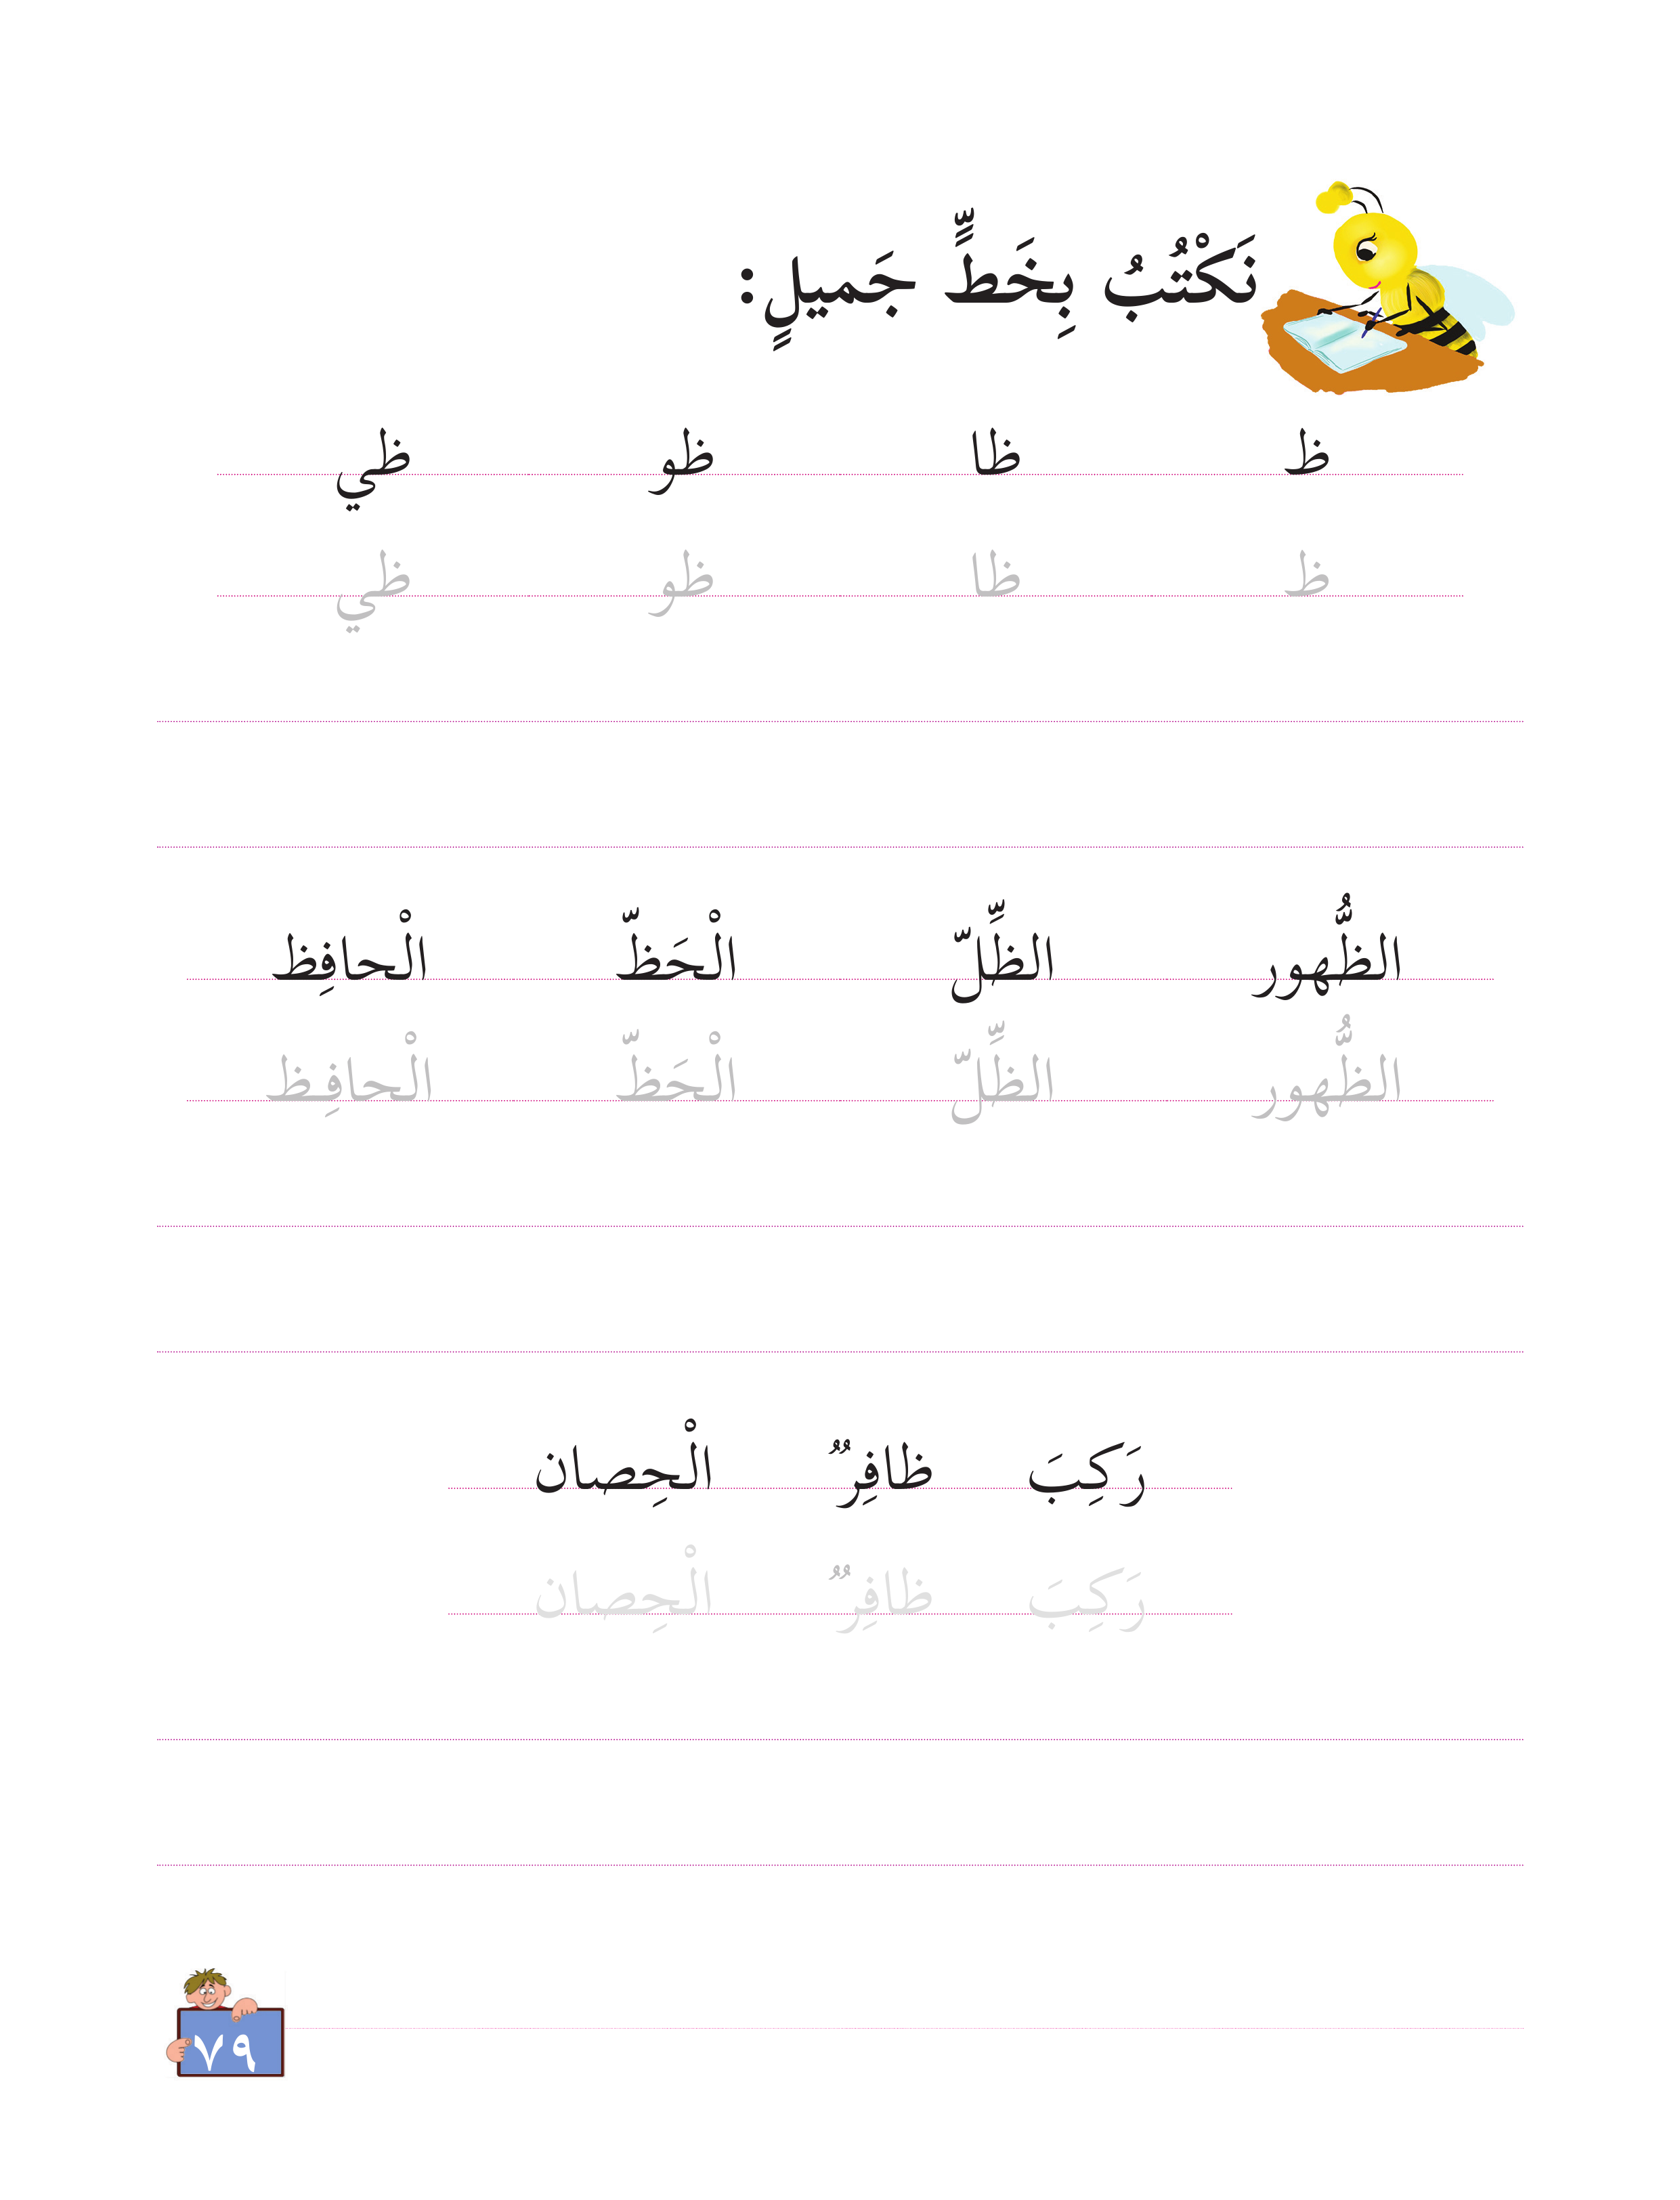 نَكْتُبُ بِخَطٍّ جَميلٍ:
ظ ظا ظو ظي
ظ ظا ظو ظي
الظُّهور الظِّلّ الْحَظّ الْحافِظ
الظُّهور الظِّلّ الْحَظّ الْحافِظ
رَكِبَ ظافِرٌ الْحِصان
رَكِبَ ظافِرٌ الْحِصان
٧٩